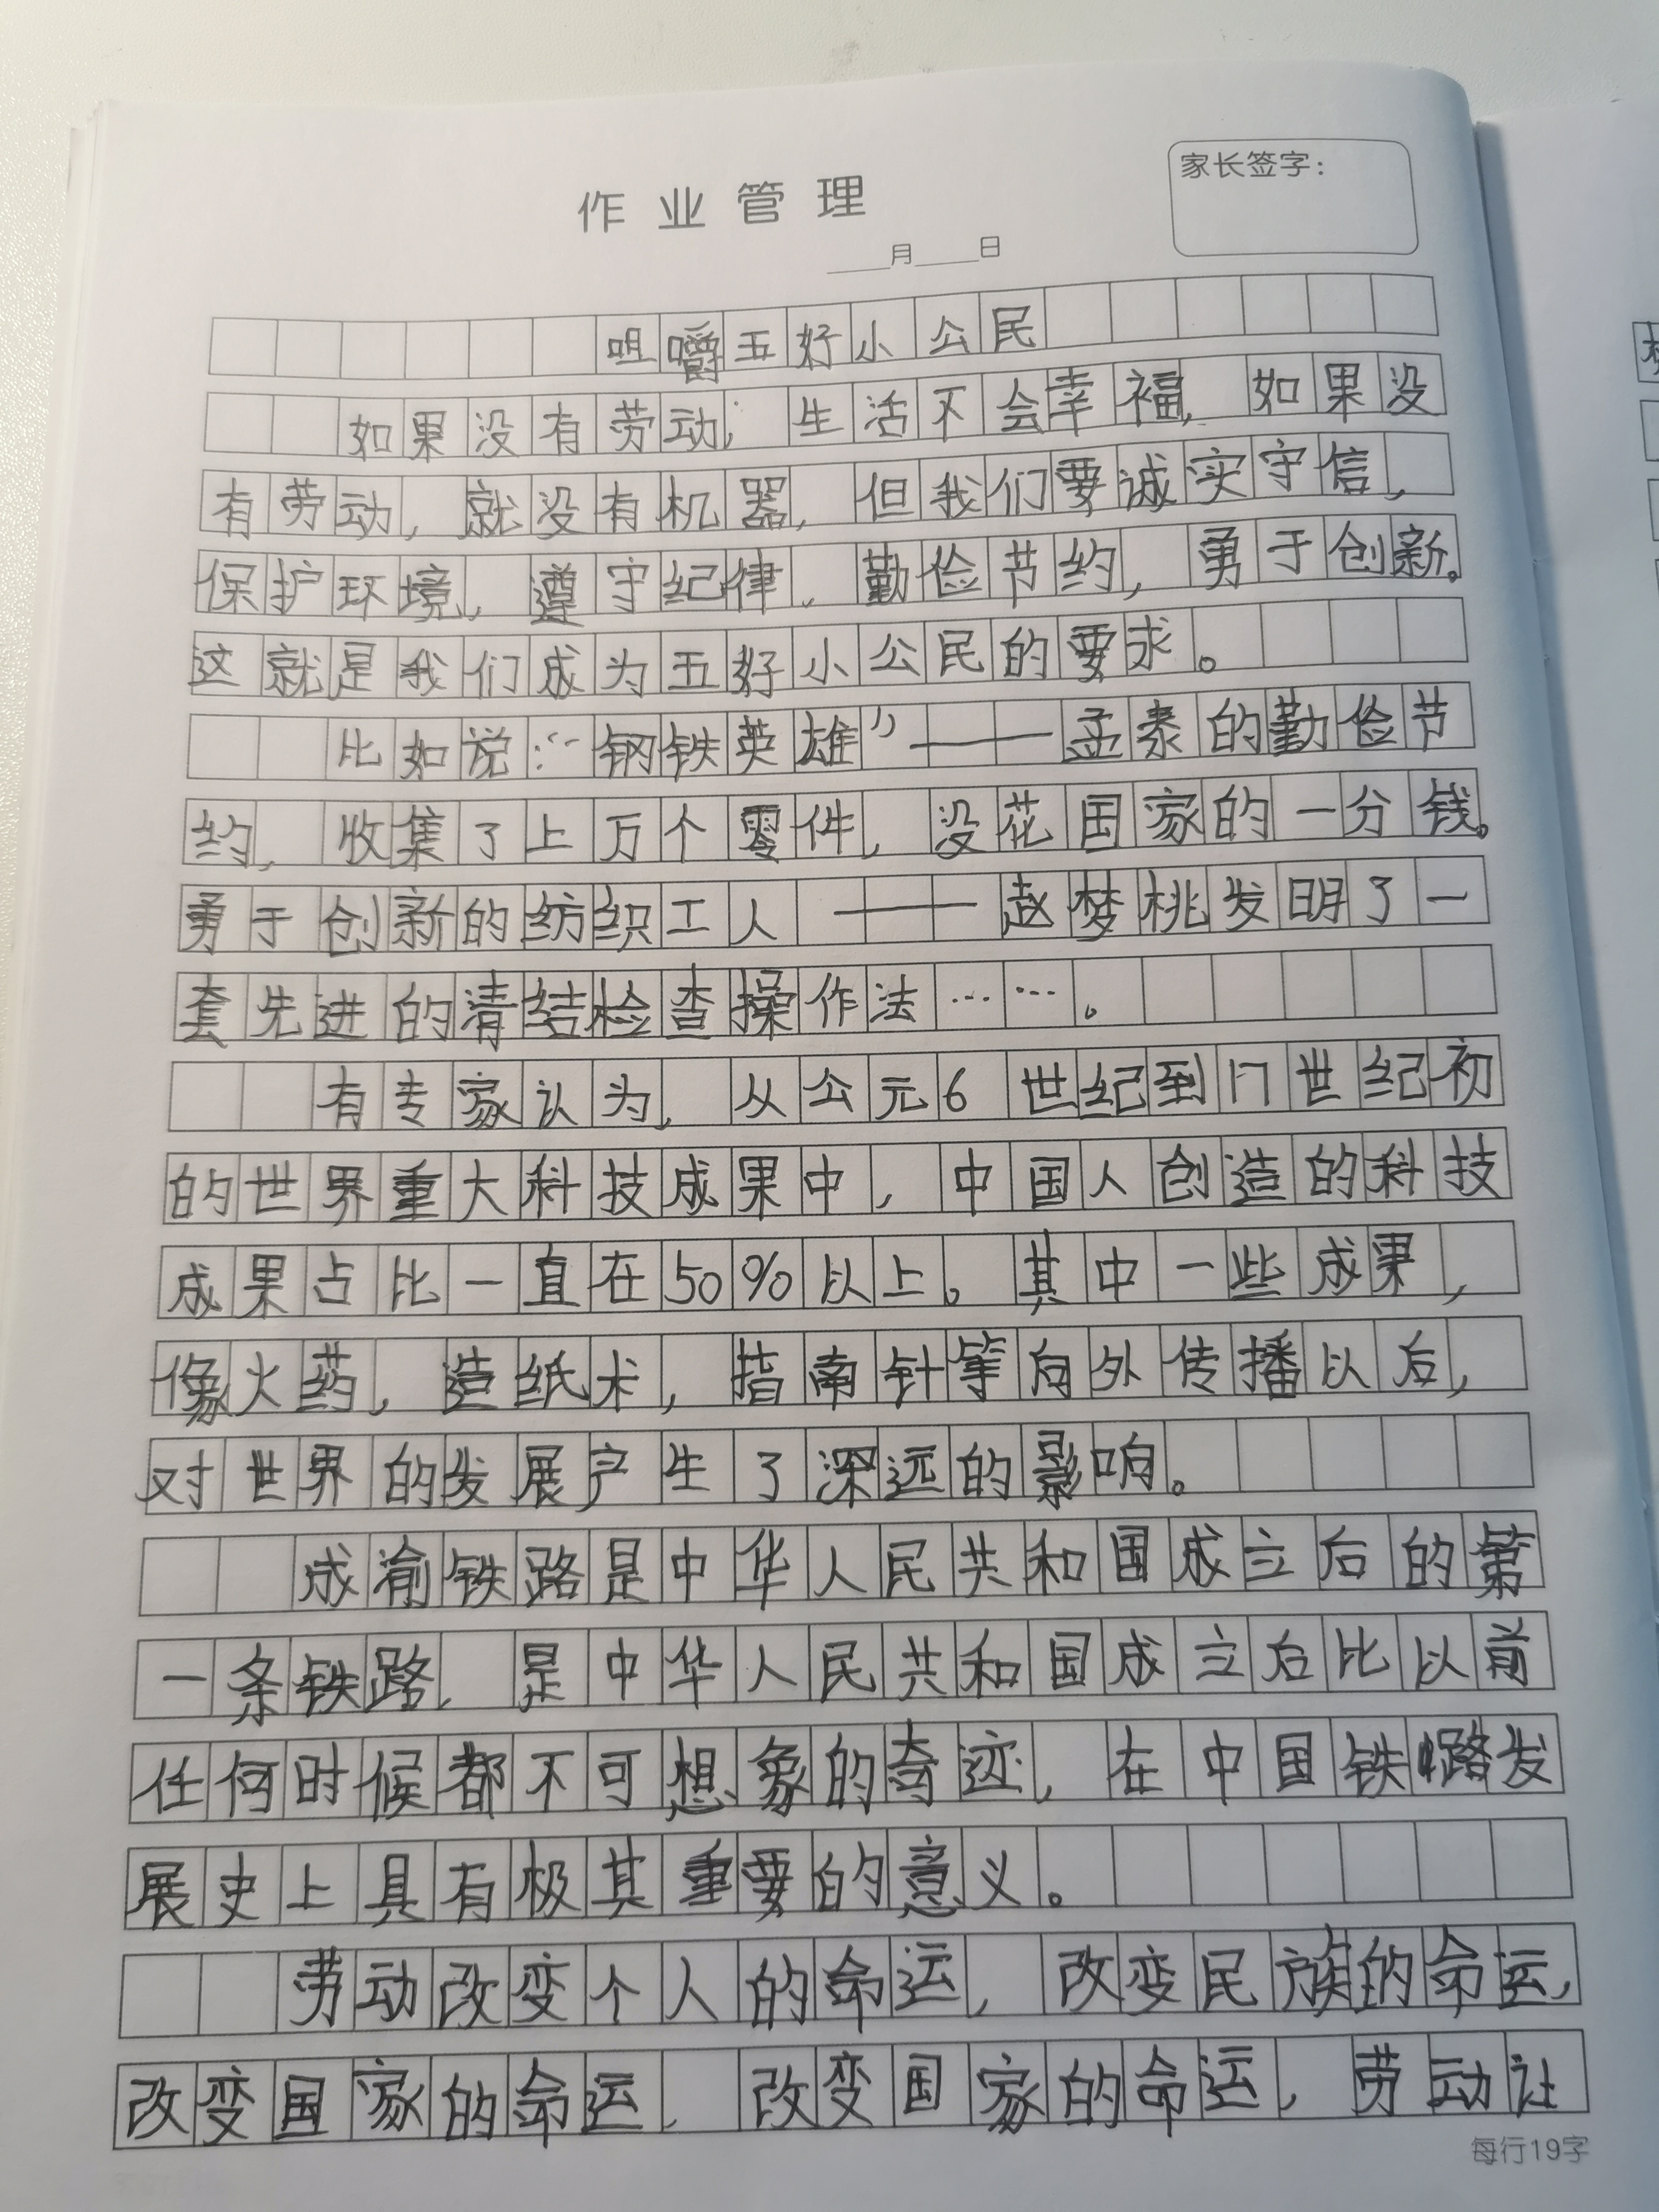 家长签字：
作业管理
____月____日
咀嚼五好小公民
如果没有劳动，生活不会幸福，如果没
有劳动，就没有机器，但我们要诚实守信，
保护环境，遵守纪律，勤俭节约，勇于创新。
这就是我们成为五好小公民的要求。
比如说：“钢铁英雄”——孟泰的勤俭节
约，收集了上万个零件，没花国家的一分钱。
勇于创新的纺织工人——赵梦桃发明了一
套先进的清结检查操作法……。
有专家认为，从公元6世纪到17世纪初
的世界重大科技成果中，中国人创造的科技
成果占比一直在50%以上。其中一些成果，
像火药，造纸术，指南针等向外传播以后，
对世界的发展产生了深远的影响。
成渝铁路是中华人民共和国成立后的第
一条铁路，是中华人民共和国成立后比以前
任何时候都不可想象的奇迹，在中国铁路发
展史上具有极其重要的意义。
劳动改变个人的命运，改变民族的命运，
改变国家的命运，改变国家的命运，劳动让
每行19字